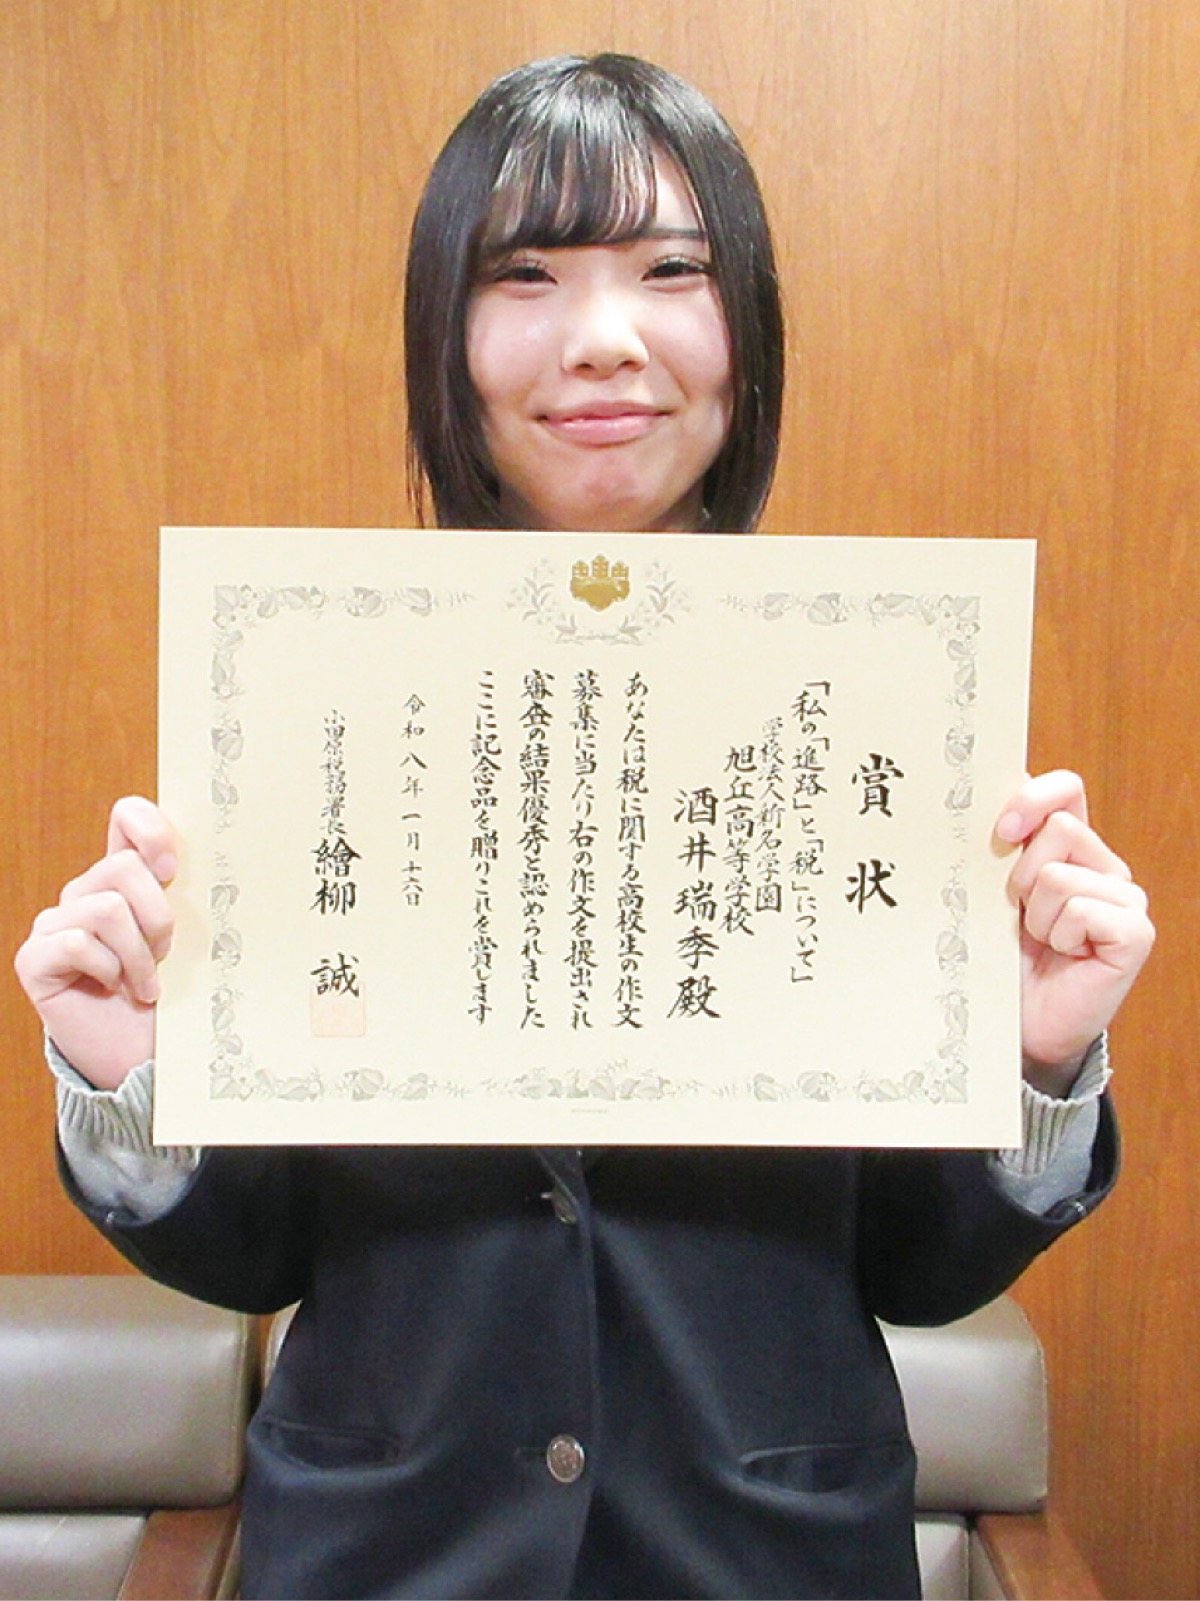 賞状
「私の「進路」と「税」について」
学校法人新名学園
旭丘高等学校
酒井瑞季殿
あなたは税に関する高校生の作文
募集に当たり右の作文を提出され
審査の結果優秀と認められました
ここに記念品を贈りこれを賞します
令和八年一月十六日
小田原税務署長 繪柳 誠